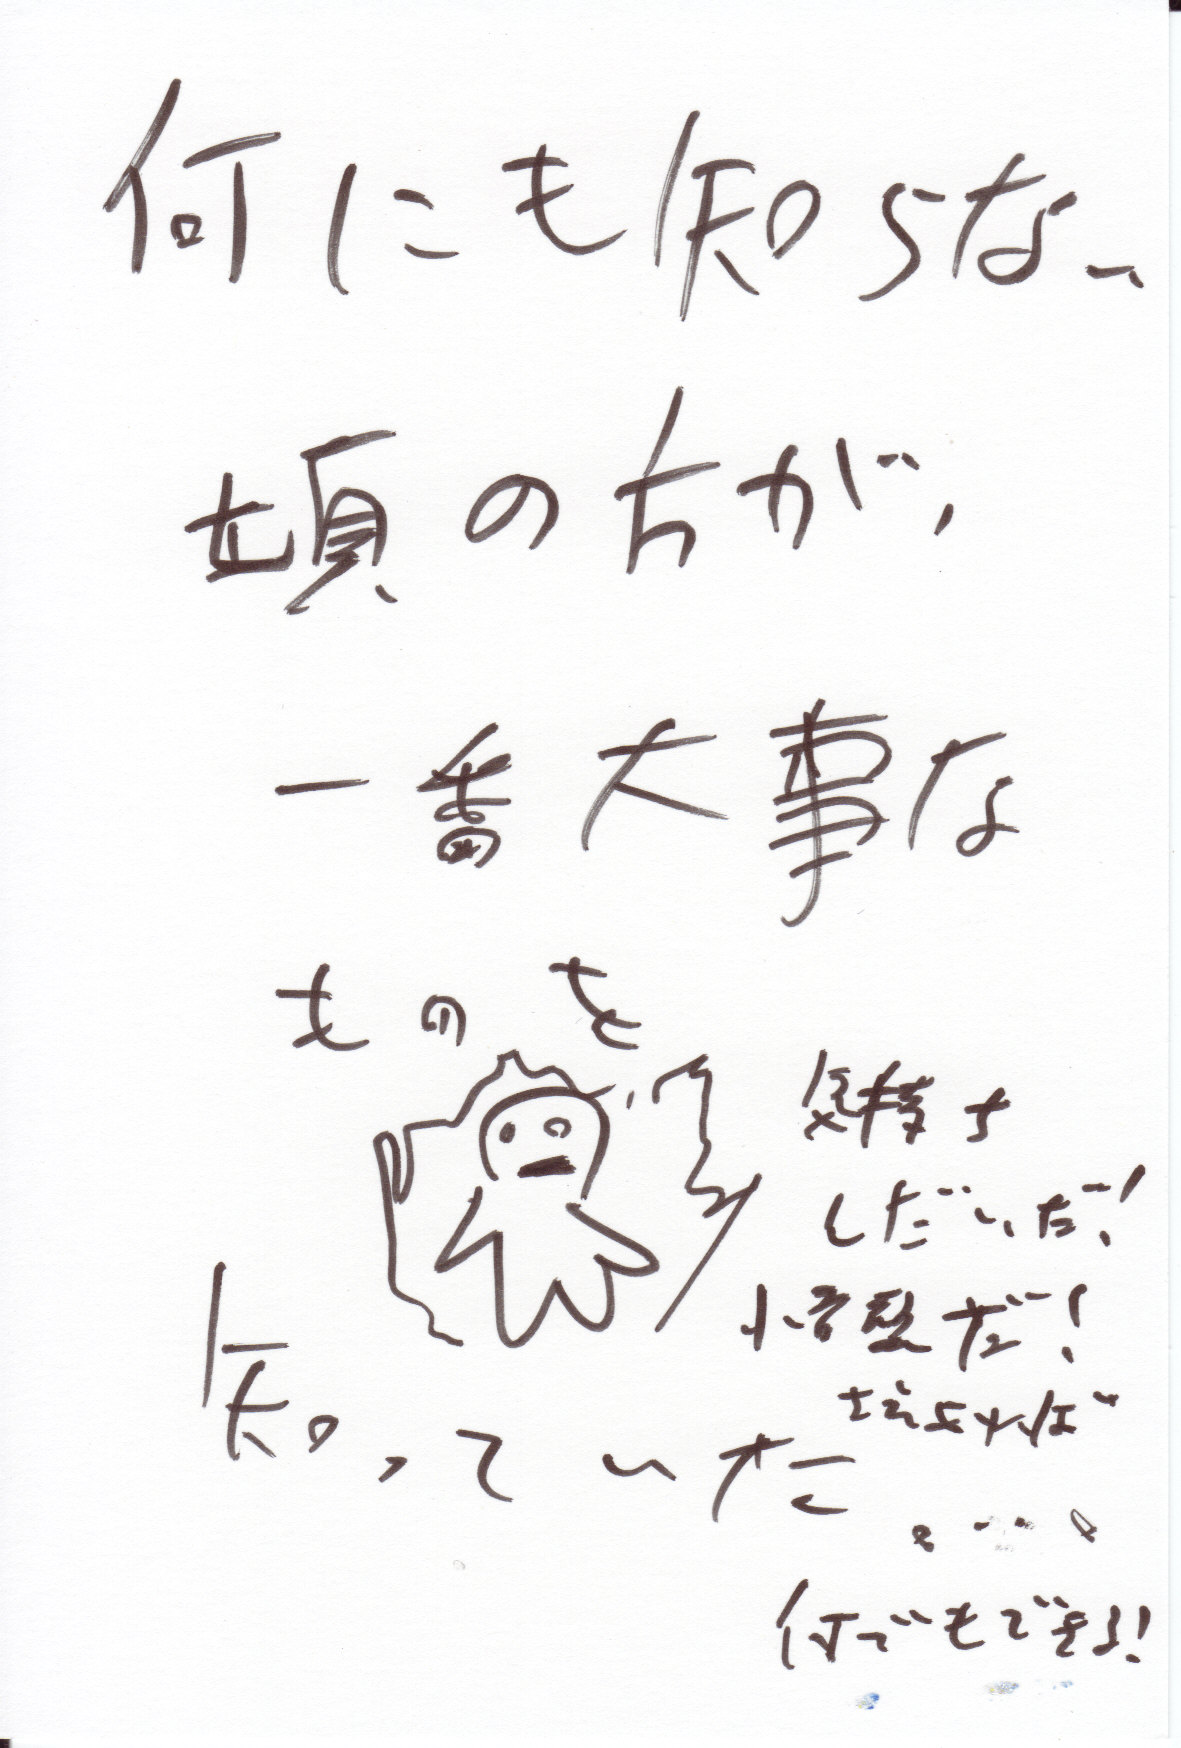 何にも知らない
頃の方が、
一番大事な
ものを
知っていた。
気持ち
しだいだ!
だ!
何でもできる!